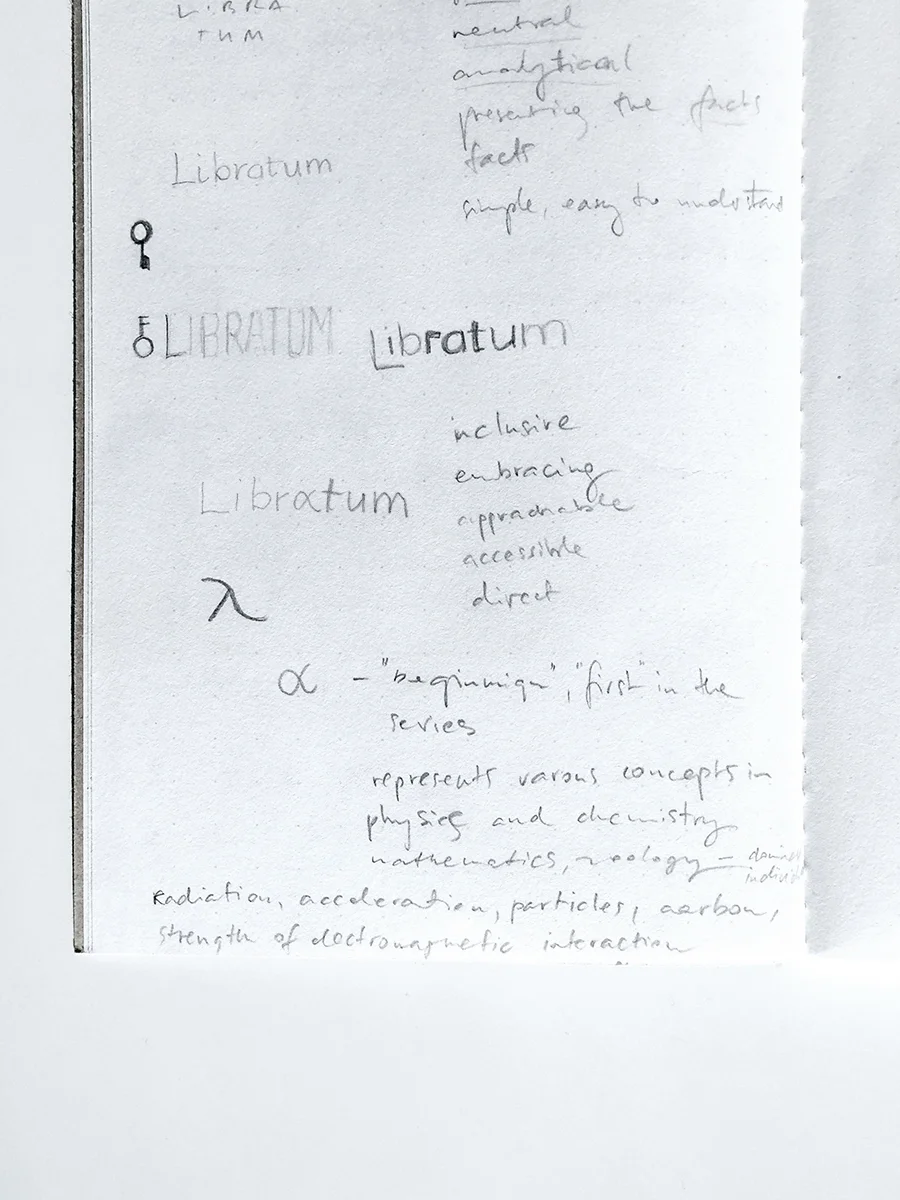 LIBRA
TUM
neutral
analytical
presenting the facts
facts
simple, easy to understand
Libratum
LIBRATUM
Libratum
inclusive
embracing
approachable
accessible
direct
Libratum
λ
α – "beginnign", "first" in the
series
represents varous concepts in
physics and chemistry
mathematics, zoology –
Radiation, acceleration, particles, carbon,
strength of electromagnetic interaction